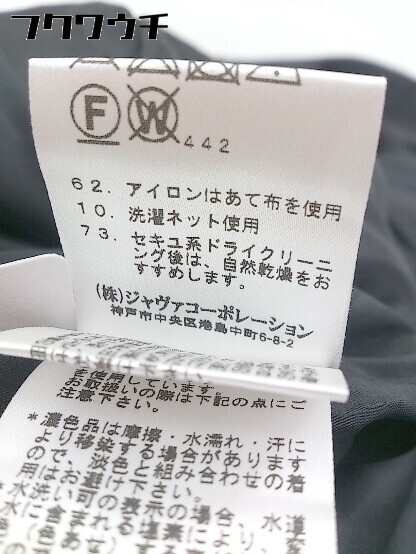 フクワウチ
F W 442
62. アイロンはあて布を使用
10. 洗濯ネット使用
73. セキユ系ドライクリーニ
ング後は、自然乾燥をお
すすめします。
(株)ジャヴァコーポレーション
神戸市中央区港島中町6-8-2
を使用しています。
お取扱いの際は下記の点にご
注意下さい。
*濃色品は摩擦・水濡れ・汗に
より移染する場合があります
ので、淡色と組み合わせの着
用はお避け下さい。
水洗い可の表示の場合、水道
水に含まれる塩素